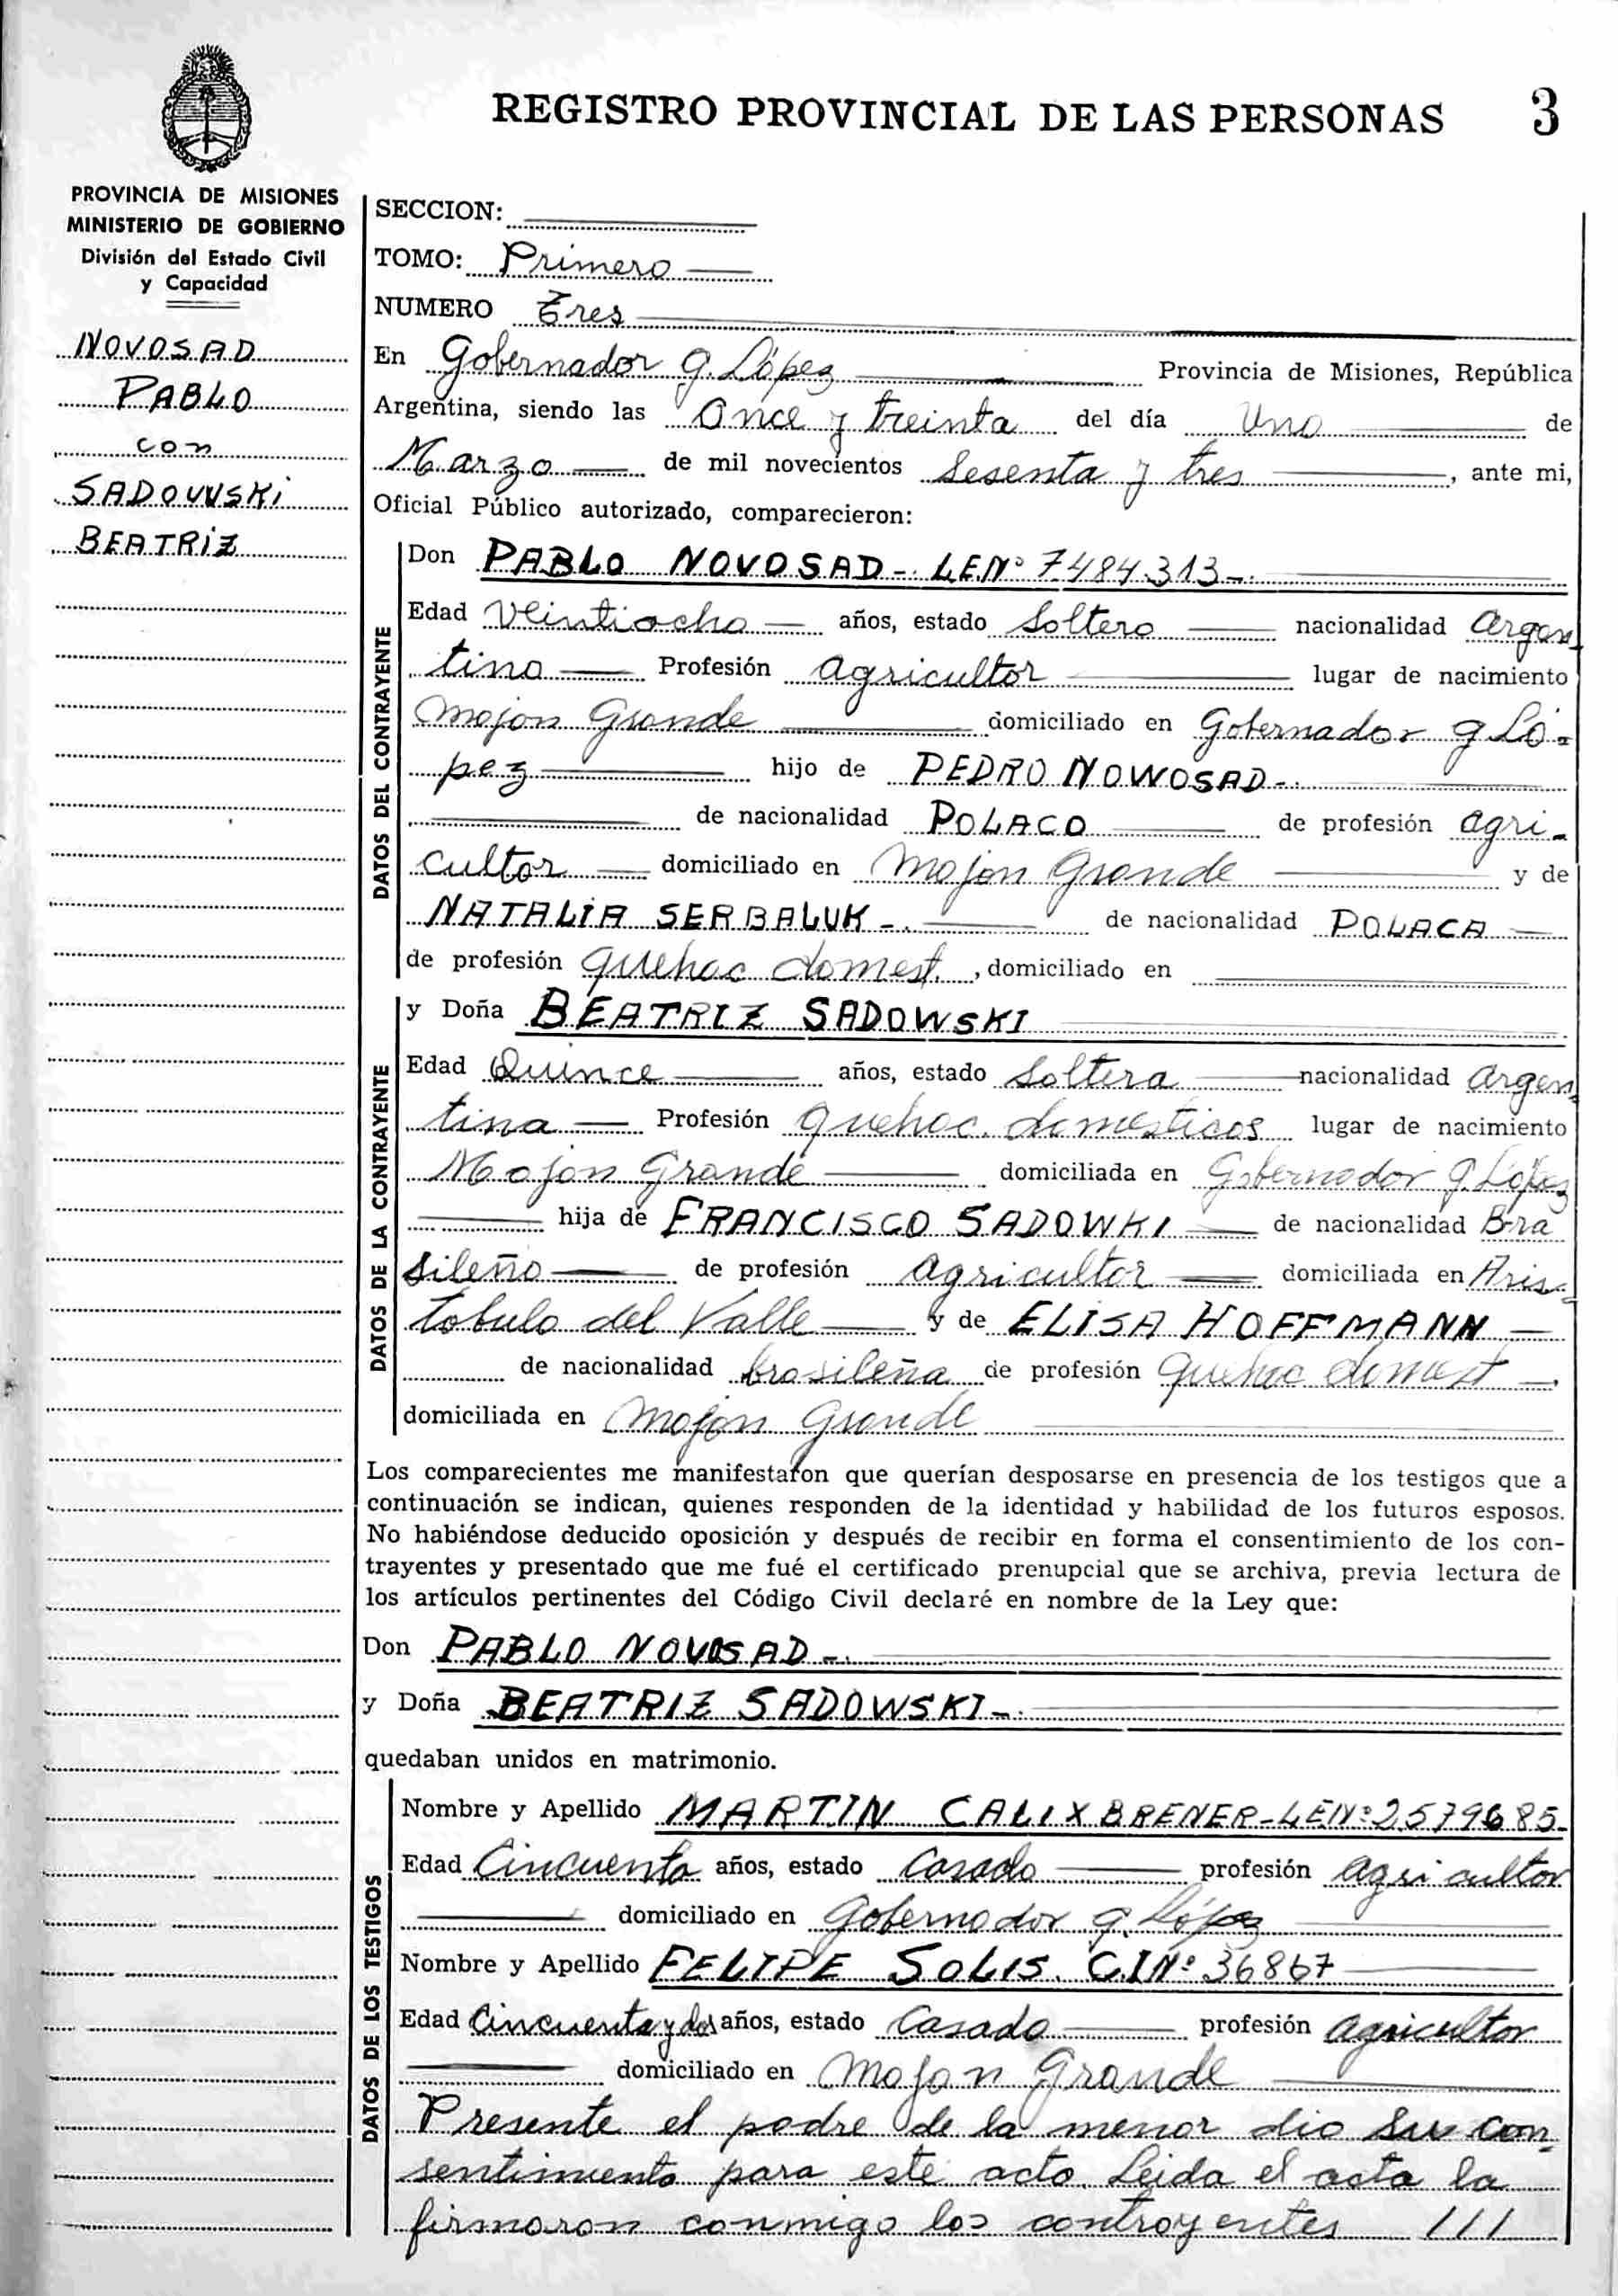 REGISTRO PROVINCIAL DE LAS PERSONAS 3
PROVINCIA DE MISIONES
MINISTERIO DE GOBIERNO
División del Estado Civil
y Capacidad
NOVOSAD
PABLO
con
SADOWSKi
BEATRiZ
SECCION:
TOMO: Primero
NUMERO Tres
En Gobernador g. López Provincia de Misiones, República
Argentina, siendo las Once y treinta del día Uno de
Marzo de mil novecientos Sesenta y tres, ante mi,
Oficial Público autorizado, comparecieron:
DATOS DEL CONTRAYENTE
Don PABLO NOVOSAD-. L.E.Nº 7484.313-.
Edad Veintiocho años, estado Soltero nacionalidad Argen
tino Profesión agricultor lugar de nacimiento
Mojon Grande domiciliado en Gobernador g Ló-
pez hijo de PEDRO NOWOSAD-.
de nacionalidad POLACO de profesión agri-
cultor domiciliado en Mojon Grande y de
NATALiA SERBALUK-. de nacionalidad POLACA
de profesión quehac domest., domiciliado en
DATOS DE LA CONTRAYENTE
y Doña BEATRIZ SADOWSKI
Edad Quince años, estado Soltera nacionalidad Argen
tina Profesión quehac. domesticos lugar de nacimiento
Mojon Grande domiciliada en Gobernador g. López
hija de FRANCISCO SADOWKI de nacionalidad Bra
sileño de profesión agricultor domiciliada en Aris-
tobulo del Valle y de ELISA HOFFMANN
de nacionalidad brasileña de profesión quehac domest
domiciliada en Mojon Grande
Los comparecientes me manifestaron que querían desposarse en presencia de los testigos que a
continuación se indican, quienes responden de la identidad y habilidad de los futuros esposos.
No habiéndose deducido oposición y después de recibir en forma el consentimiento de los con-
trayentes y presentado que me fué el certificado prenupcial que se archiva, previa lectura de
los artículos pertinentes del Código Civil declaré en nombre de la Ley que:
Don PABLO NOVOSAD-.
y Doña BEATRIZ SADOWSKI-.
quedaban unidos en matrimonio.
DATOS DE LOS TESTIGOS
Nombre y Apellido MARTIN CALIXBRENER-L.E.Nº2.579685-
Edad Cincuenta años, estado Casado profesión agricultor
domiciliado en Gobernador g. López
Nombre y Apellido FELIPE SOLIS. C.I.Nº 36867
Edad Cincuenta y dos años, estado Casado profesión agricultor
domiciliado en Mojon Grande
Presente el padre de la menor dio su con-
sentimiento para este acto. Leida el acta la
firmaron conmigo los contrayentes ///